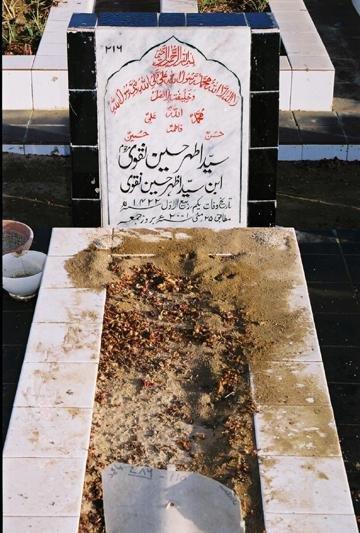 ۲۱۶
بسم اللہ الرحمن الرحیم
لا الہ الا اللہ محمد رسول اللہ علی ولی اللہ وصی رسول اللہ
وخلیفتہ بلا فصل
محمدؐ اللہ علیؑ
فاطمہؑ
حسنؑ حسینؑ
سید اطہر حسین نقوی مرحوم
ابن سید اظہر حسین نقوی
تاریخ وفات یکم ربیع الاول ۱۴۲۲ھ
مطابق ۲۵ مئی ۲۰۰۱ء بروز جمعہ